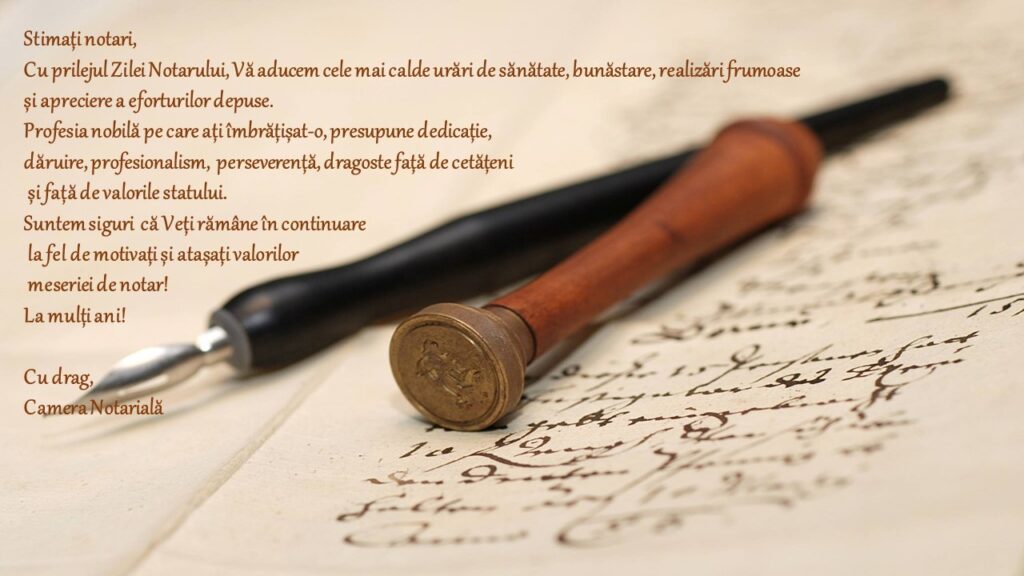 Stimați notari,
Cu prilejul Zilei Notarului, Vă aducem cele mai calde urări de sănătate, bunăstare, realizări frumoase
și apreciere a eforturilor depuse.
Profesia nobilă pe care ați îmbrățișat-o, presupune dedicație,
dăruire, profesionalism, perseverență, dragoste față de cetățeni
și față de valorile statului.
Suntem siguri că Veți rămâne în continuare
la fel de motivați și atașați valorilor
meseriei de notar!
La mulți ani!
Cu drag,
Camera Notarială